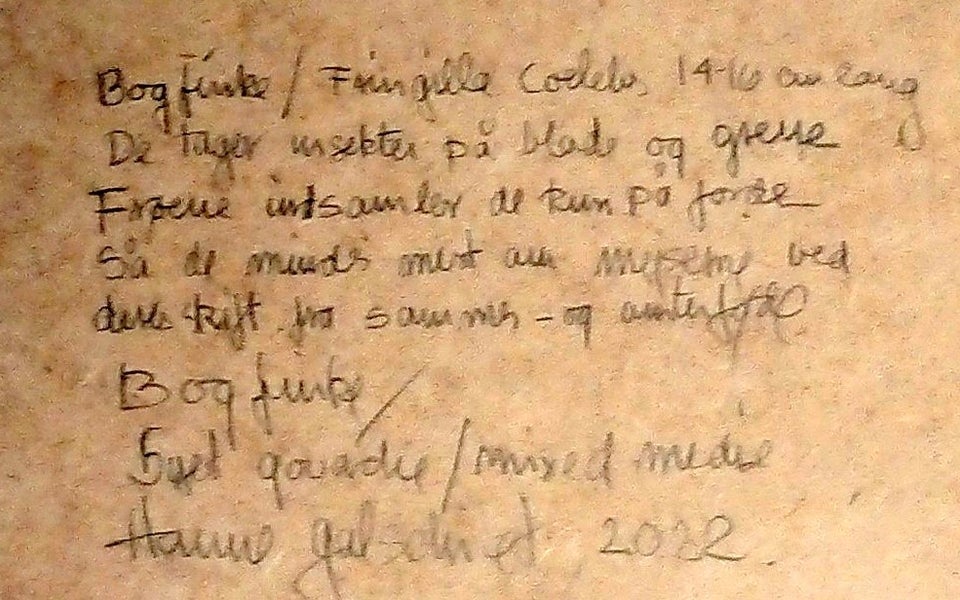 Bogfinke / Fringilla Coelebs, 14-16 cm lang
De tager insekter på blade og grene
Frøene indsamler de kun på jorden
Så de minder mest om ved
deres skift fra sommer - og vinterføde
Bogfinke /
gouache / mixed media
Hanne 2022